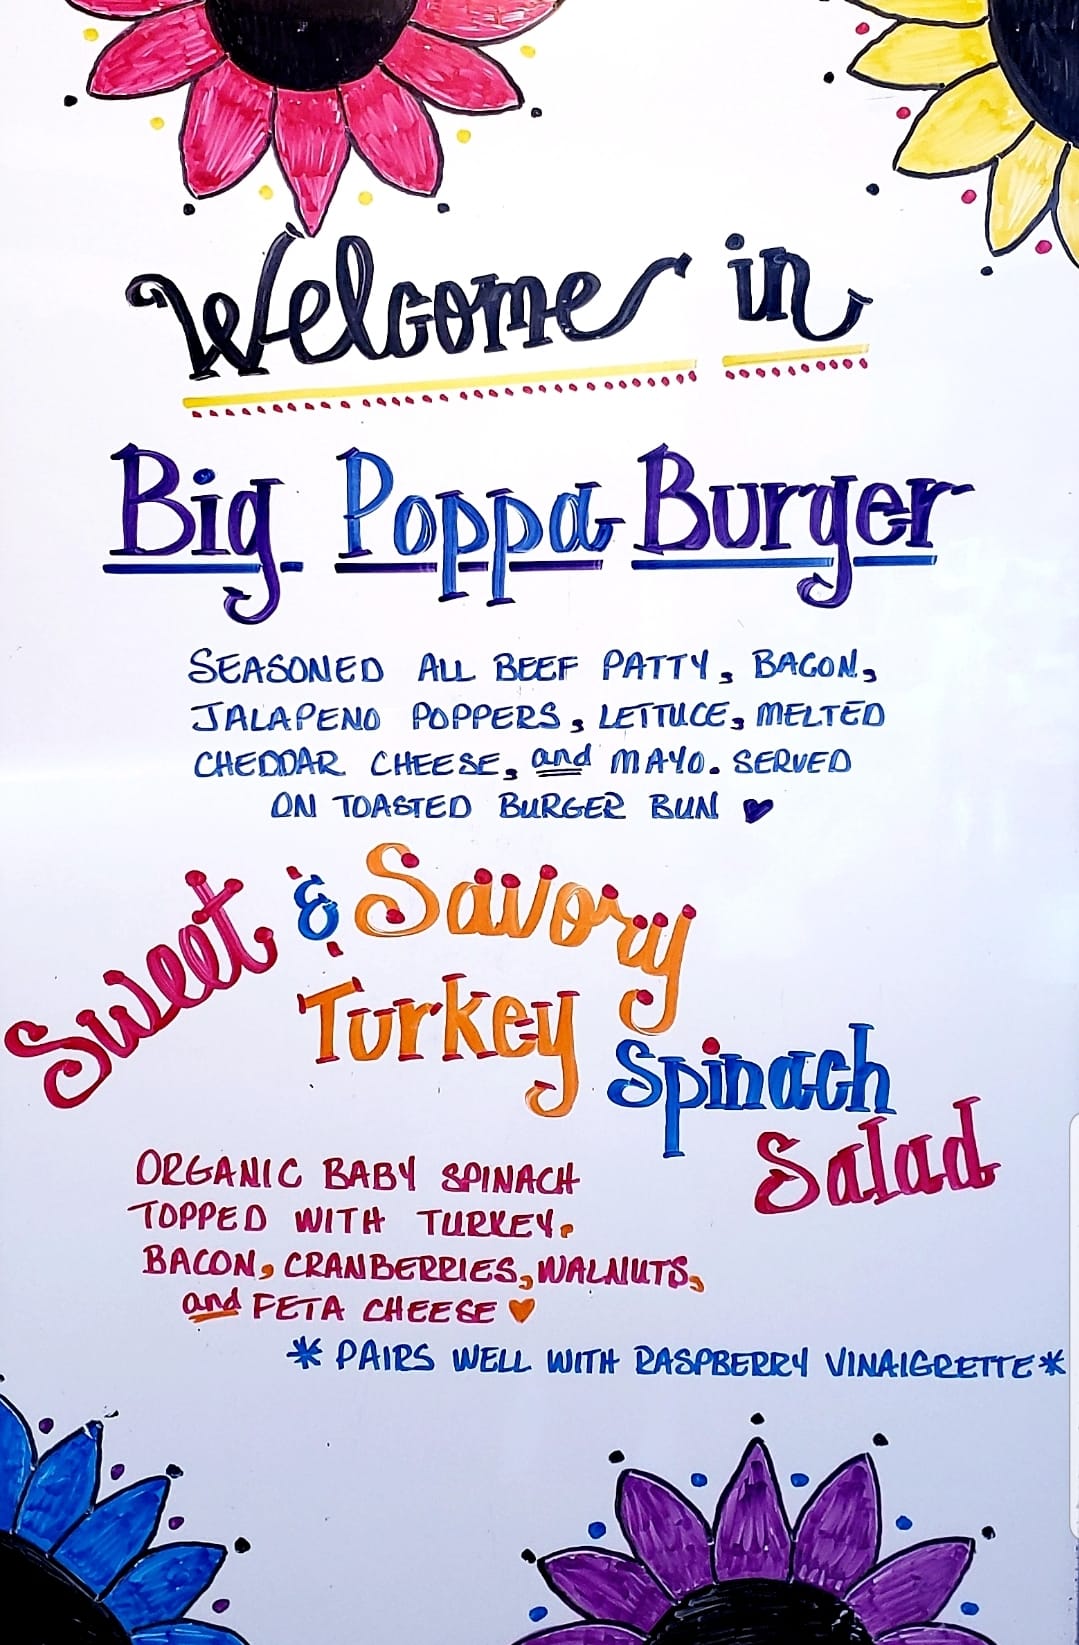 Welcome in
Big Poppa Burger
SEASONED ALL BEEF PATTY, BACON,
JALAPENO POPPERS, LETTUCE, MELTED
CHEDDAR CHEESE, and MAYO. SERVED
ON TOASTED BURGER BUN
Sweet & Savory
Turkey
Spinach
Salad
ORGANIC BABY SPINACH
TOPPED WITH TURKEY,
BACON, CRANBERRIES, WALNUTS,
and FETA CHEESE
* PAIRS WELL WITH RASPBERRY VINAIGRETTE *